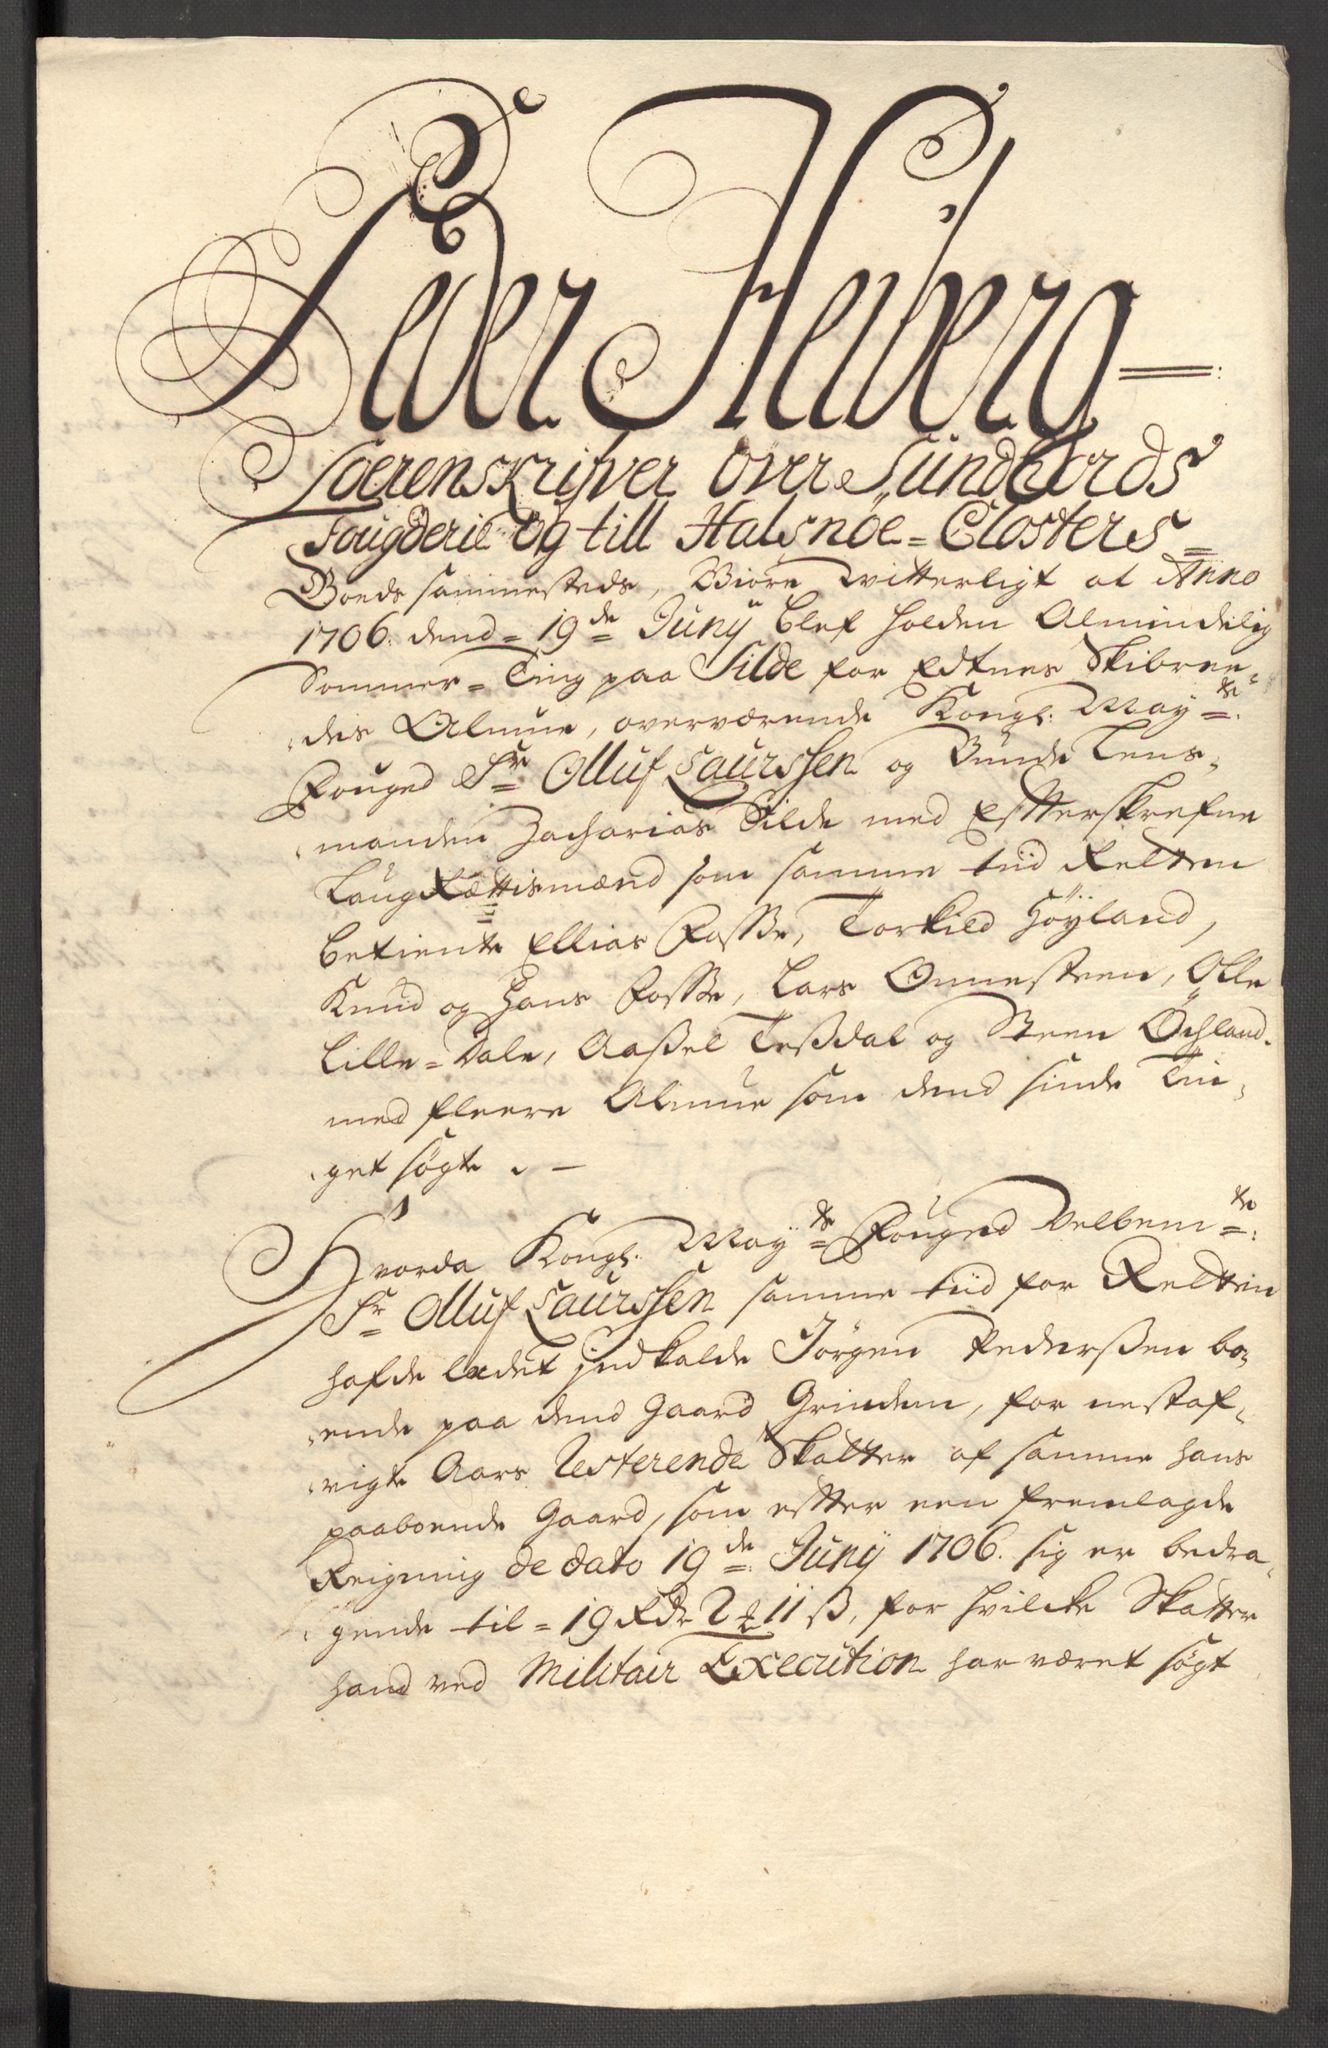 Peder Heiberg =:
Soerenskrifver over Sundhords
Fougderie og till Halsnöe=Closters=
Goeds sammesteds, Giöre vitterligt at Anno
1706. dend= 19de Juny blef holden Almindelig
Sommer=Ting paa Silde for Edtnes Skibree,,
,,des Almue, overværende Kongl: Mayts:
Fouged Sr Olluf Laurssen og Bunde Lens,,
,,manden Zacharias Silde med Efterskrefne
LaugRættismænd som samme tiid Retten
betiente Ellias Fosse, Torkild Höyland,
Knud og Hans Fosse, Lars Ommesteen, Olle
Lille=Dale, Aaßel Teßdal og Steen Öchland.
med fleere Almue som dend sinde Tin,,
,,get sögte. -
Hvorda Kongl. Mayts Fouged Velbemte:
Sr Olluf Laurssen samme tiid for Retten
hafde ladet indkalde Jörgen Pederßen bo,,
,,ende paa dend Gaard Grindem, for nestaf,,
,,vigte Aars Resterende Skatter af samme hans
paaboende Gaard, som efter een fremlagde
Reigning de dato 19de Juny 1706. sig er bedra,,
,,gende til= 19 Rdr 2 ꝶ 11 ß, for hvilcke Skatter
hand ved Militair Execution har været sögt